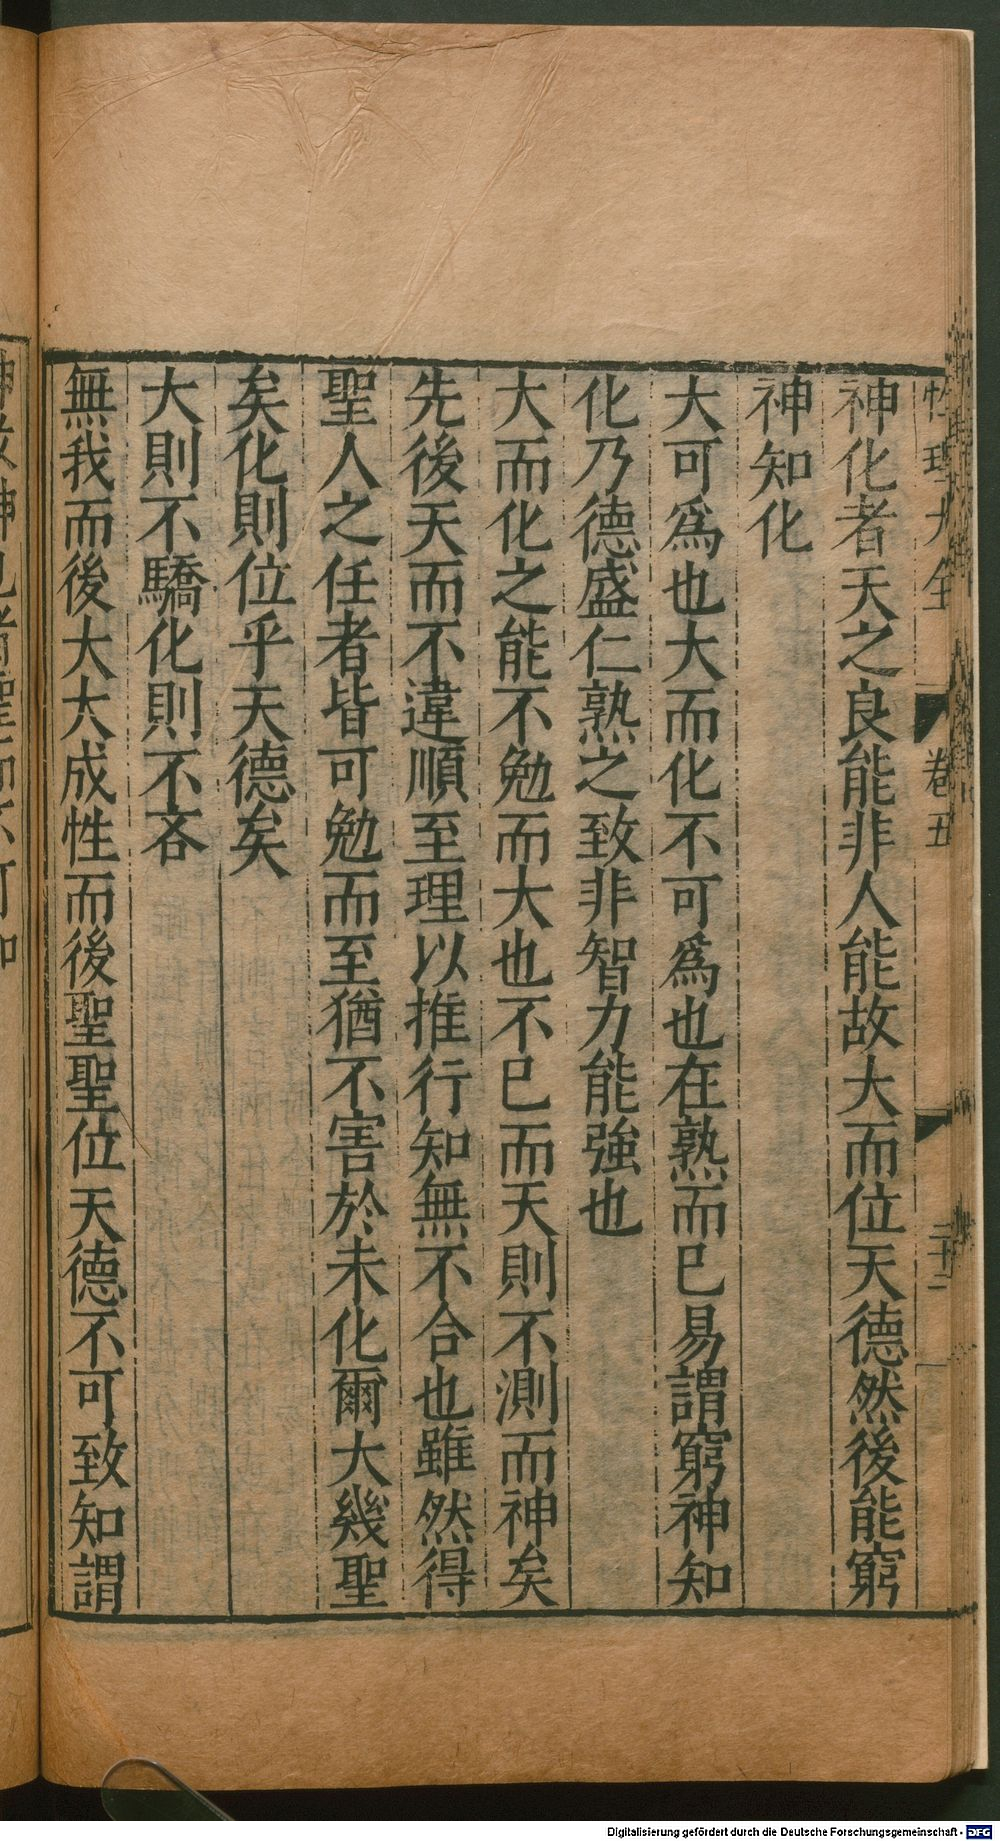 性理大全 卷五 二十二
神化者天之良能非人能故大而位天德然後能窮
神知化
大可爲也大而化不可爲也在熟而已易謂窮神知
化乃德盛仁熟之致非智力能強也
大而化之能不勉而大也不已而天則不測而神矣
先後天而不違順至理以推行知無不合也雖然得
聖人之任者皆可勉而至猶不害於未化爾大幾聖
矣化則位乎天德矣
大則不驕化則不吝
無我而後大大成性而後聖聖位天德不可致知謂
Digitalisierung gefördert durch die Deutsche Forschungsgemeinschaft - DFG